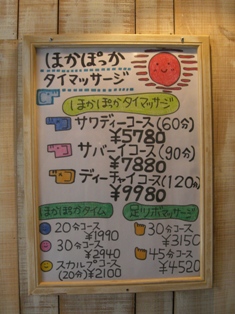 ほかぽっか
タイマッサージ
ほかぽかタイマッサージ
サワディーコース(60分)
¥5780
サバーイコース(90分)
¥7880
ディーチャイコース(120分)
¥9980
ほかぽかタイム
20分コース
¥1990
30分コース
¥2940
スカルプコース
(20分)¥2100
足ツボマッサージ
30分コース
¥3150
45分コース
¥4520